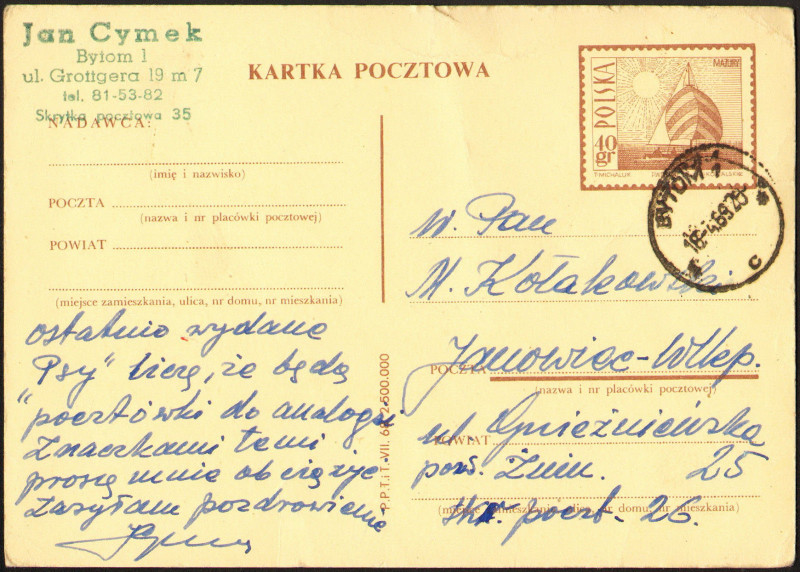 Jan Cymek
Bytom 1
ul. Grottgera 19 m 7
tel. 81-53-82
Skrytka pocztowa 35
KARTKA POCZTOWA
MAZURY
POLSKA
40 gr
T. MICHALUK
BYTOM 1
18-4.69.20
c
NADAWCA:
(imię i nazwisko)
POCZTA
(nazwa i nr placówki pocztowej)
POWIAT
(miejsce zamieszkania, ulica, nr domu, nr mieszkania)
ostatnio wydane
"Psy" liczę, że będą
pocztówki do analogii
Znaczkami temi
proszę mnie obciążyć
Zasyłam pozdrowienie
P.P.T.iT. VII. 2.500.000
W. Pan
M. Kołakowski
Janowiec-Wlkp.
POCZTA
(nazwa i nr placówki pocztowej)
ul. Gnieźnieńska
POWIAT
25
pow. Żnin.
(miejsce zamieszkania, ulica, nr domu, nr mieszkania)
skr. poczt. 26.